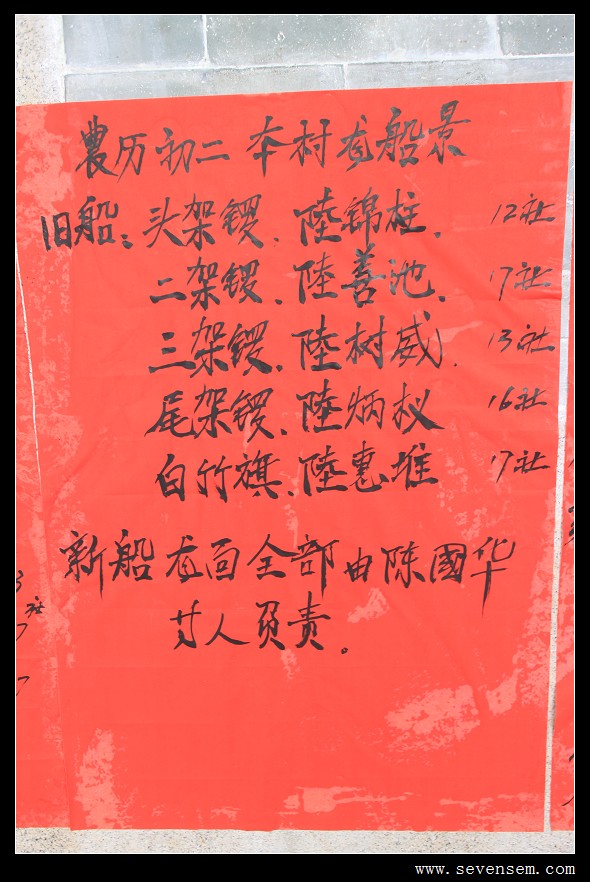 農历初二本村龙船景
旧船：头架锣．陸锦柱． 12社
二架锣．陸善池． 17社
三架锣．陸树威． 13社
尾架锣．陸炳权 16社
白竹旗．陸惠堆 17社
新船龙面全部由陈國华
等人负责。
www.sevensem.com